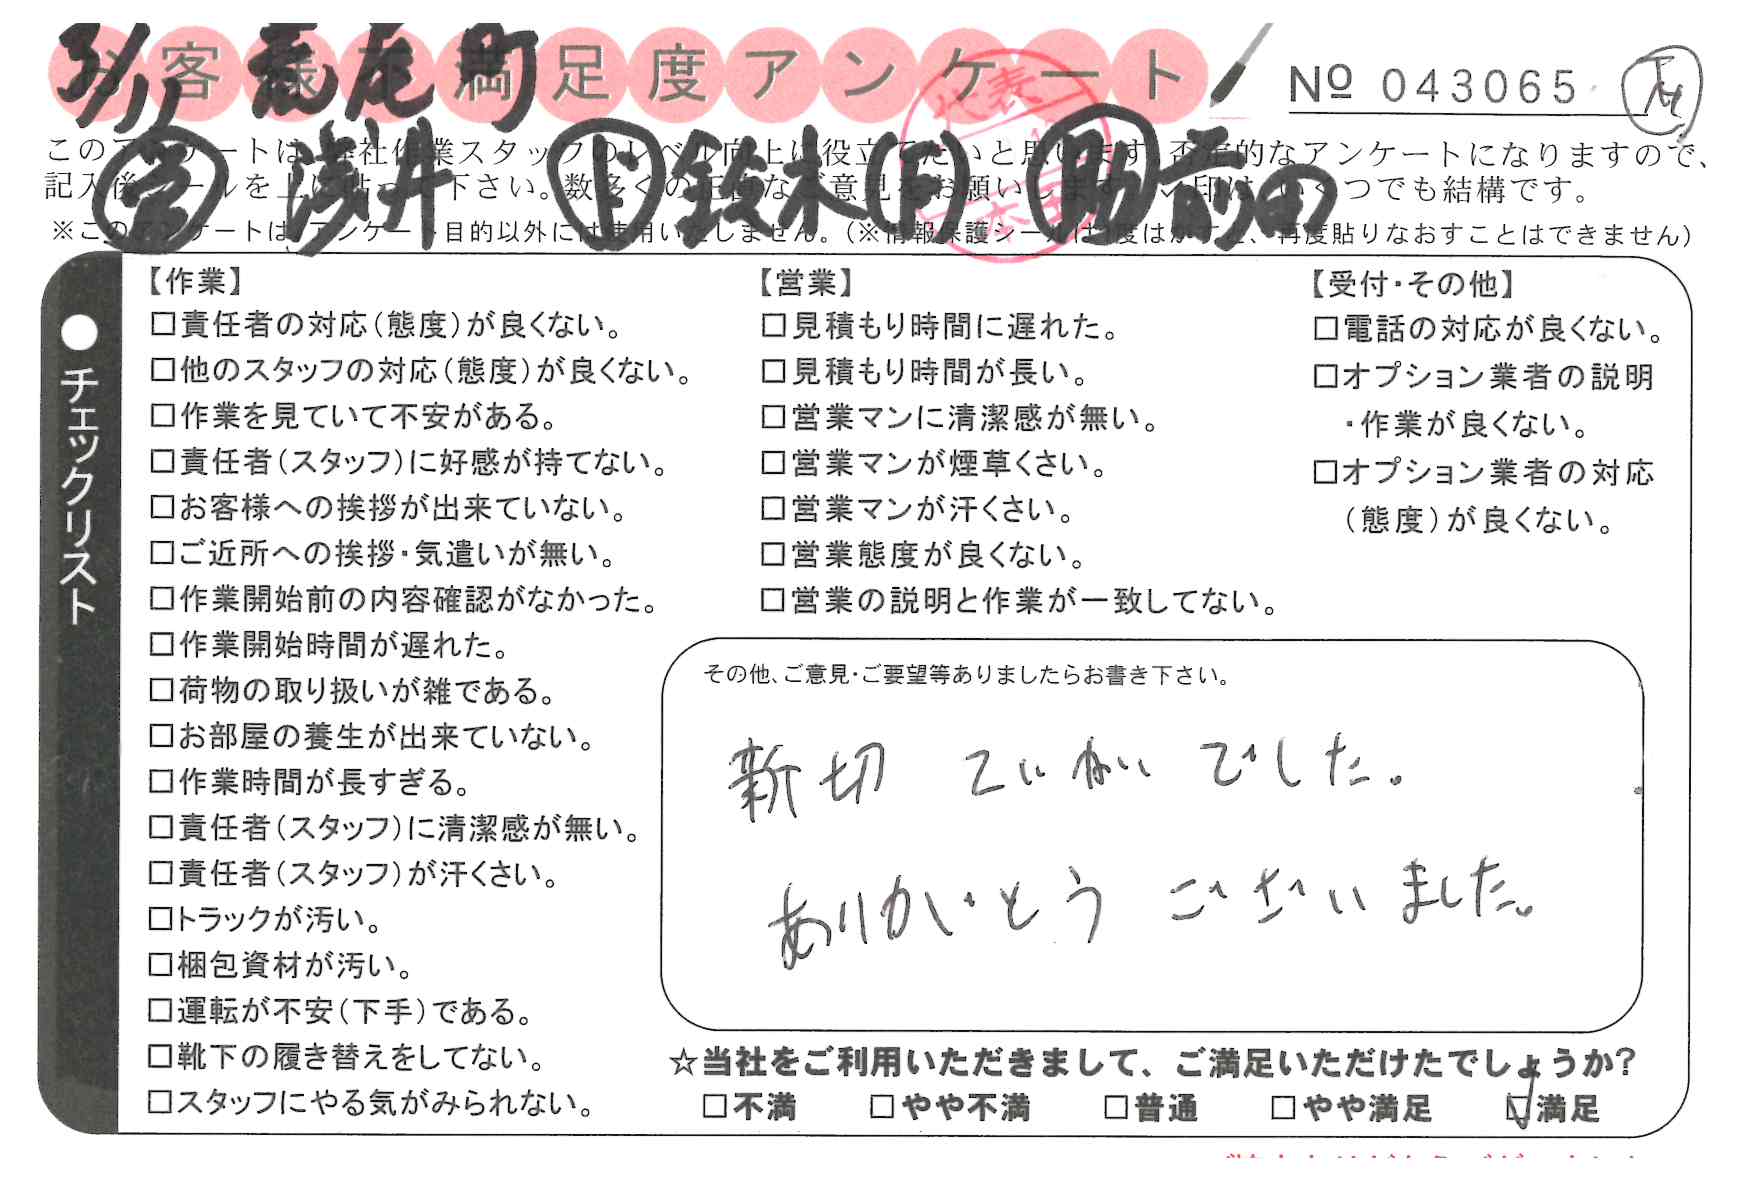 お客様不満足度アンケート
3/11 荒尾町
№ 043065
営 浅井 ドり 鈴木 助 前田
代表
このアンケートは、当社作業スタッフのレベル向上に役立てたいと思います。否定的なアンケートになりますので、
記入後シールを上に貼って下さい。数多くの正直なご意見をお願いします。レ印は、いくつでも結構です。
※このアンケートは、アンケート目的以外には使用いたしません。（※情報保護シールは1度はがすと、再度貼りなおすことはできません）
●チェックリスト
【作業】
□責任者の対応（態度）が良くない。
□他のスタッフの対応（態度）が良くない。
□作業を見ていて不安がある。
□責任者（スタッフ）に好感が持てない。
□お客様への挨拶が出来ていない。
□ご近所への挨拶・気遣いが無い。
□作業開始前の内容確認がなかった。
□作業開始時間が遅れた。
□荷物の取り扱いが雑である。
□お部屋の養生が出来ていない。
□作業時間が長すぎる。
□責任者（スタッフ）に清潔感が無い。
□責任者（スタッフ）が汗くさい。
□トラックが汚い。
□梱包資材が汚い。
□運転が不安（下手）である。
□靴下の履き替えをしてない。
□スタッフにやる気がみられない。
【営業】
□見積もり時間に遅れた。
□見積もり時間が長い。
□営業マンに清潔感が無い。
□営業マンが煙草くさい。
□営業マンが汗くさい。
□営業態度が良くない。
□営業の説明と作業が一致してない。
【受付・その他】
□電話の対応が良くない。
□オプション業者の説明
・作業が良くない。
□オプション業者の対応
（態度）が良くない。
その他、ご意見・ご要望等ありましたらお書き下さい。
新切 ていねい でした。
ありがとう ございました。
☆当社をご利用いただきまして、ご満足いただけたでしょうか？
□不満 □やや不満 □普通 □やや満足 ☑満足